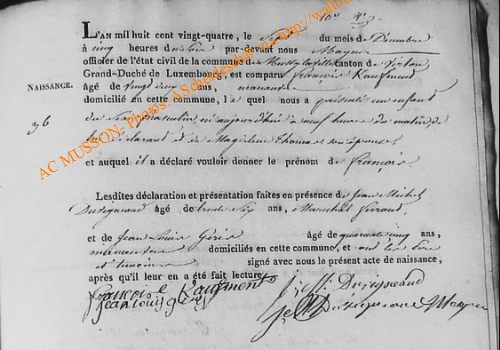 L'AN mil huit cent vingt-quatre, le sept du mois de Décembre
à cinq heures du soir par-devant nous Mayeur
officier de l'état civil de la commune de Mussy-la-ville canton de Virton
Grand-Duché de Luxembourg, est comparu françois Kauffment
NAISSANCE.
36
âgé de vingt cinq ans, manœuvre
domicilié en cette commune, lequel nous a présenté un enfant
du sexe masculin né aujourd'hui à neuf heures du matin, de
lui déclarant et de Magdelene Thomas son épouse
et auquel il a déclaré vouloir donner le prénom de françois
Lesdites déclaration et présentation faites en présence de Jean Michel
Duvigneaud âgé de trente six ans, Marechal ferrant
et de Jean Louis âgé de quarante cinq ans,
manœuvre domiciliés en cette commune, et ont les père
et témoins signé avec nous le présent acte de naissance,
après qu'il leur en a été fait lecture
françois Kauffment
jean louis
j. M. Duvigneaud
AC MUSSON- Photos: ASchenkelouxwww.